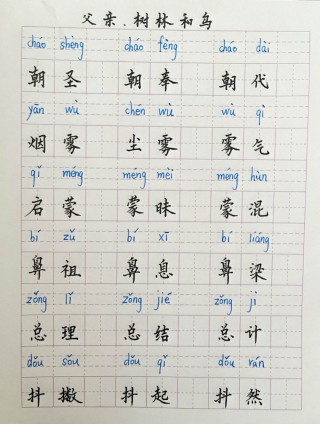 父亲、树林和鸟
cháo shèng cháo fèng cháo dài
朝圣 朝奉 朝代
yān wù chén wù wù qì
烟雾 尘雾 雾气
qǐ méng méng mèi méng hùn
启蒙 蒙昧 蒙混
bí zǔ bí xī bí liáng
鼻祖 鼻息 鼻梁
zǒng lǐ zǒng jié zǒng jì
总理 总结 总计
dǒu sǒu dǒu qǐ dǒu rán
抖擞 抖起 抖然